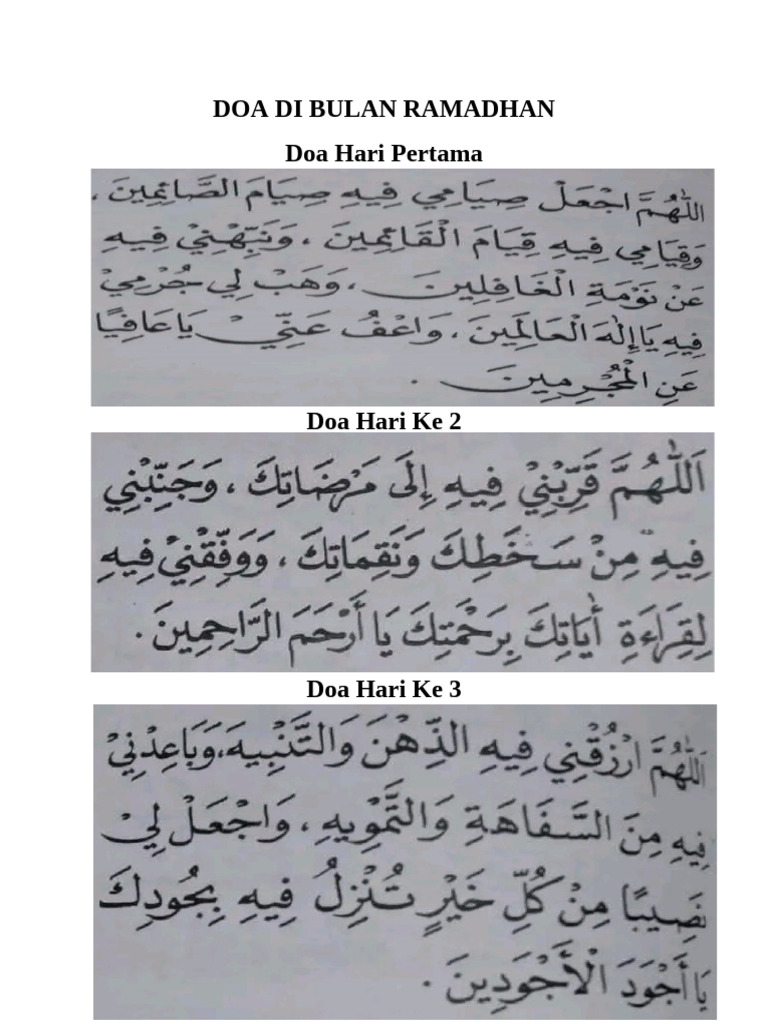 DOA DI BULAN RAMADHAN
Doa Hari Pertama
اللّٰهُمَّ اجْعَلْ صِيَامِي فِيهِ صِيَامَ الصَّائِمِينَ،
وَقِيَامِي فِيهِ قِيَامَ الْقَائِمِينَ، وَنَبِّهْنِيْ فِيهِ
عَنْ نَوْمَةِ الْغَافِلِينَ، وَهَبْ لِي جُرْمِيْ
فِيهِ يَا إِلٰهَ الْعَالَمِينَ، وَاعْفُ عَنِّيْ يَا عَافِيًا
عَنِ الْمُجْرِمِينَ.
Doa Hari Ke 2
اَللّٰهُمَّ قَرِّبْنِيْ فِيهِ إِلَى مَرْضَاتِكَ، وَجَنِّبْنِي
فِيهِ مِنْ سَخَطِكَ وَنَقِمَاتِكَ، وَوَفِّقْنِيْ فِيهِ
لِقِرَاءَةِ أٰيَاتِكَ بِرَحْمَتِكَ يَا أَرْحَمَ الرَّاحِمِينَ.
Doa Hari Ke 3
اَللّٰهُمَّ ارْزُقْنِي فِيهِ الذِّهْنَ وَالتَّنْبِيهَ، وَبَاعِدْنِيْ
فِيهِ مِنَ السَّفَاهَةِ وَالتَّمْوِيهِ، وَاجْعَلْ لِيْ
نَصِيبًا مِنْ كُلِّ خَيْرٍ تُنْزِلُ فِيهِ بِجُودِكَ
يَا أَجْوَدَ الْأَجْوَدِينَ.